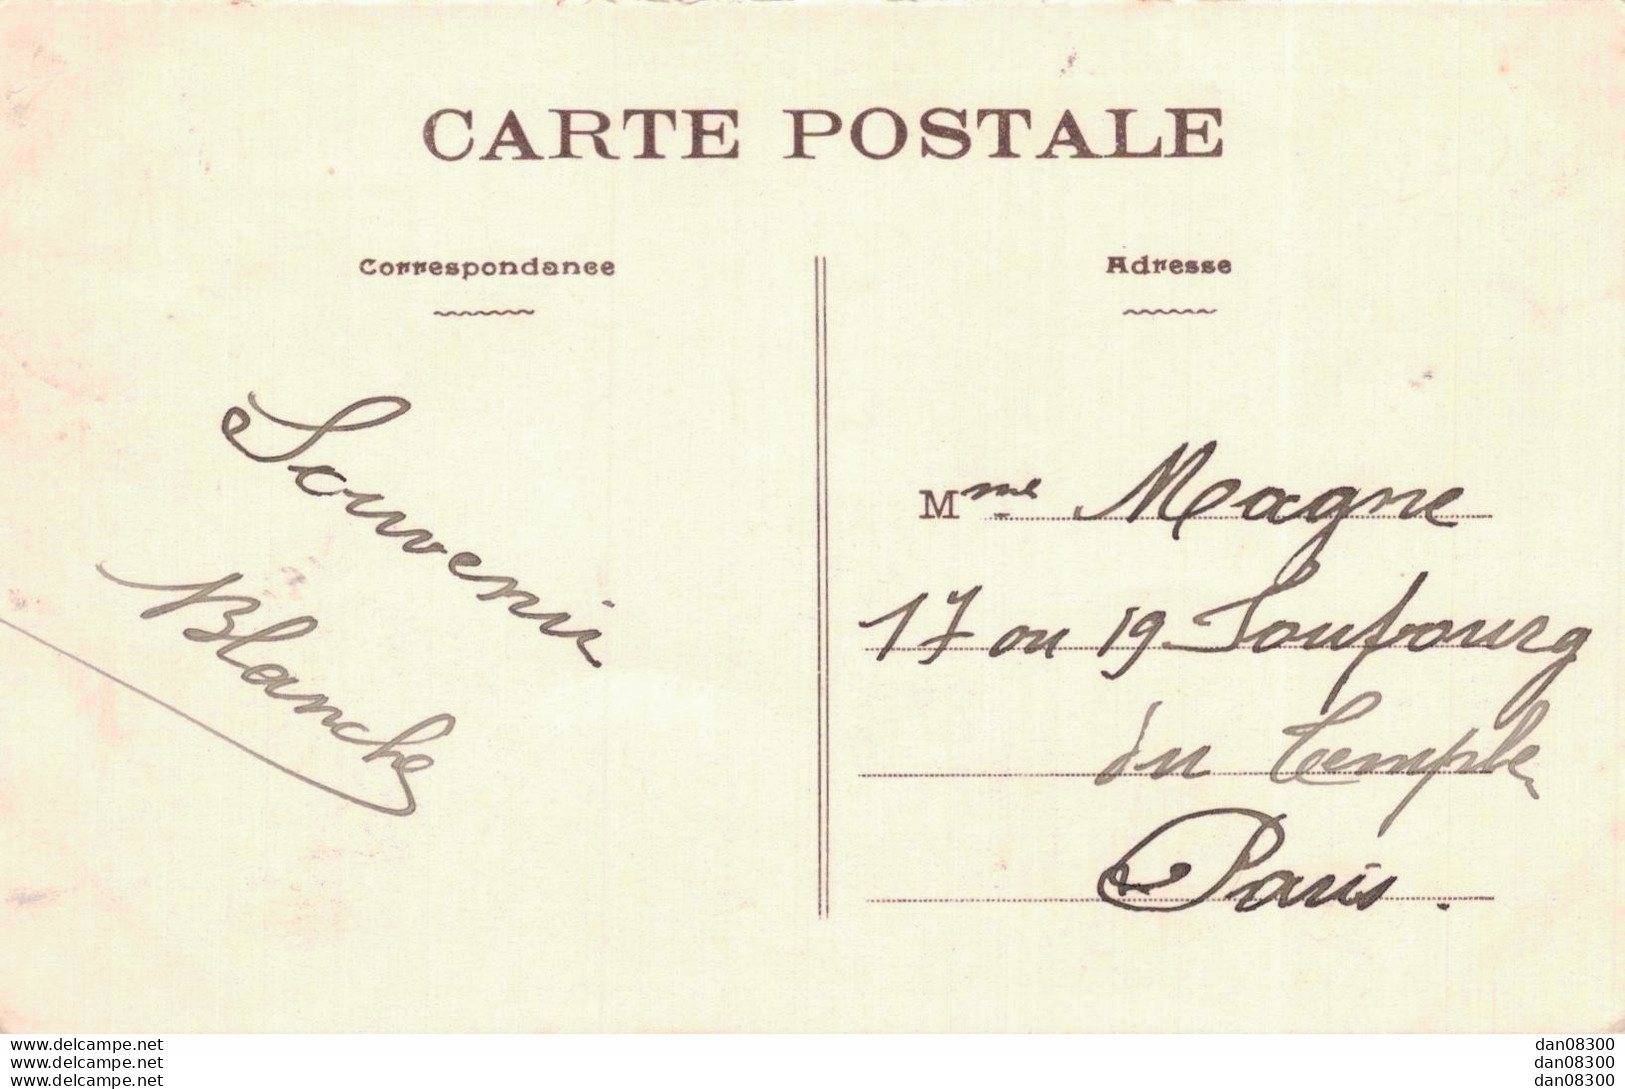 CARTE POSTALE
Correspondance
Souvenir
Blanche
Adresse
Mme Magne
17 ou 19 Foufourg
du Temple
Paris.
www.delcampe.net
www.delcampe.net
www.delcampe.net
dan08300
dan08300
dan08300